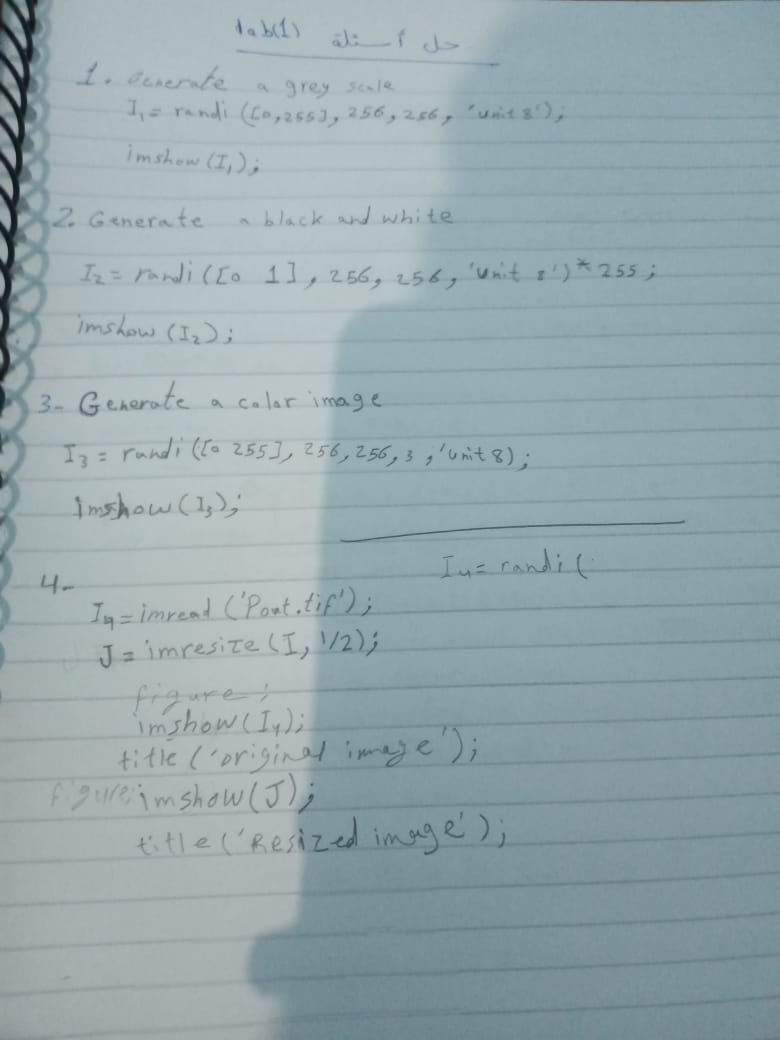 حل أسئلة lab(1)
1. Generate a grey scale
I₁ = randi ([0,255], 256, 256, 'unit 8');
imshow (I₁);
2. Generate a black and white
I₂ = randi ([0 1], 256, 256, 'unit 8') * 255;
imshow (I₂);
3- Generate a color image
I₃ = randi ([0 255], 256, 256, 3, 'unit 8);
imshow (I₃);
I₄ = randi (
4-
I₄ = imread ('Pout.tif');
J = imresize (I, 1/2);
figure;
imshow (I₄);
title ('original image');
figure; imshow (J);
title ('Resized image');